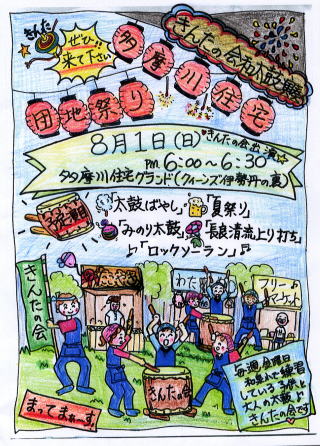 きんた!
ぜひ!!
来て下さい
きんたの会和太鼓
多摩川住宅
団地祭り
8月1日(日)
きんたの会出演☆
PM 6:00〜6:30
多摩川住宅グランド(クイーンズ伊勢丹の裏)
「太鼓ばやし」「夏祭り」
「みのり太鼓」「長良清流上り打ち」
「ロックソーラン」
きんたの会
わた
フリー
マーケット
きんたの会
毎週金曜日
和泉小で練習
している子供と
大人の太鼓♪
きんたの会です
まってまぁーす。